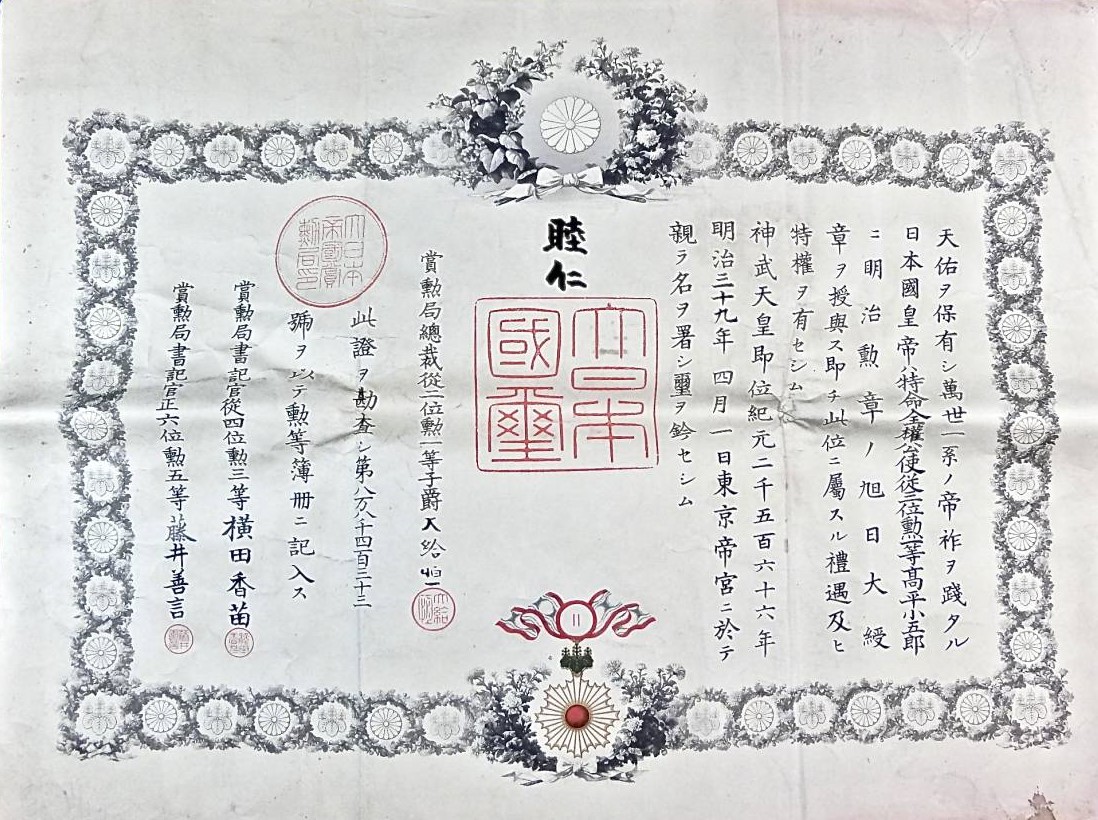 天佑ヲ保有シ萬世一系ノ帝祚ヲ踐タル
日本國皇帝ハ特命全權公使從三位勲一等高平小五郎
ニ明治勲章ノ旭日大綬
章ヲ授與ス即チ此位ニ屬スル禮遇及ヒ
特權ヲ有セシム
神武天皇即位紀元二千五百六十六年
明治三十九年四月一日東京帝宮ニ於テ
親ラ名ヲ署シ璽ヲ鈐セシム
睦仁
大日本
國璽
賞勲局總裁從二位勲一等子爵大給恒
此證ヲ勘査シ第八万八千四百三十三
號ヲ以テ勲等簿冊ニ記入ス
大日本
帝國賞
勲局印
賞勲局書記官從四位勲三等横田香苗
賞勲局書記官正六位勲五等藤井善言